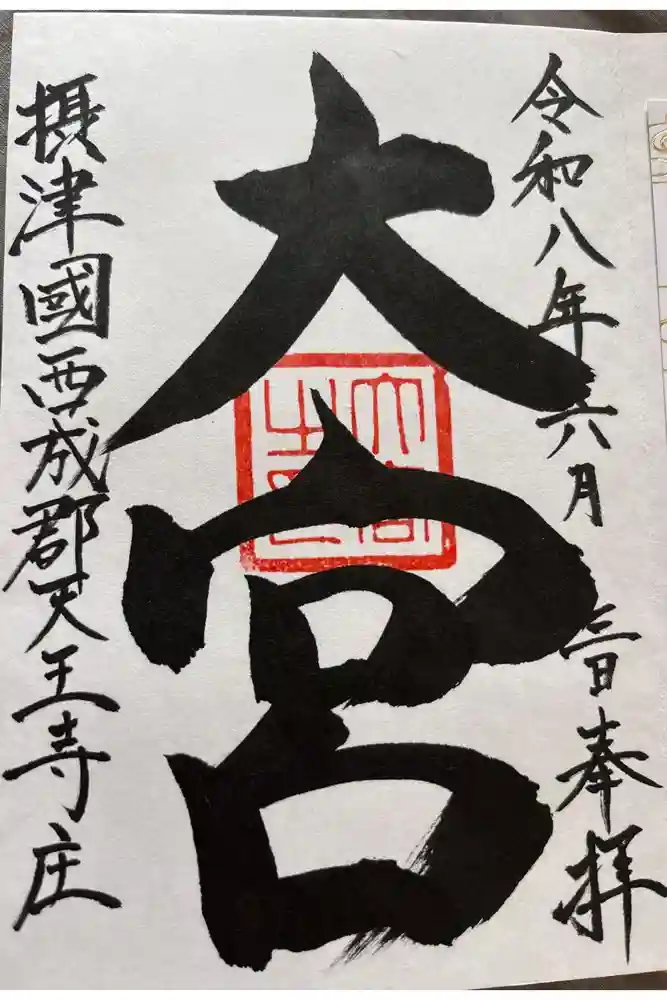 令和八年六月三日奉拝
大宮
摂津國西成郡天王寺庄